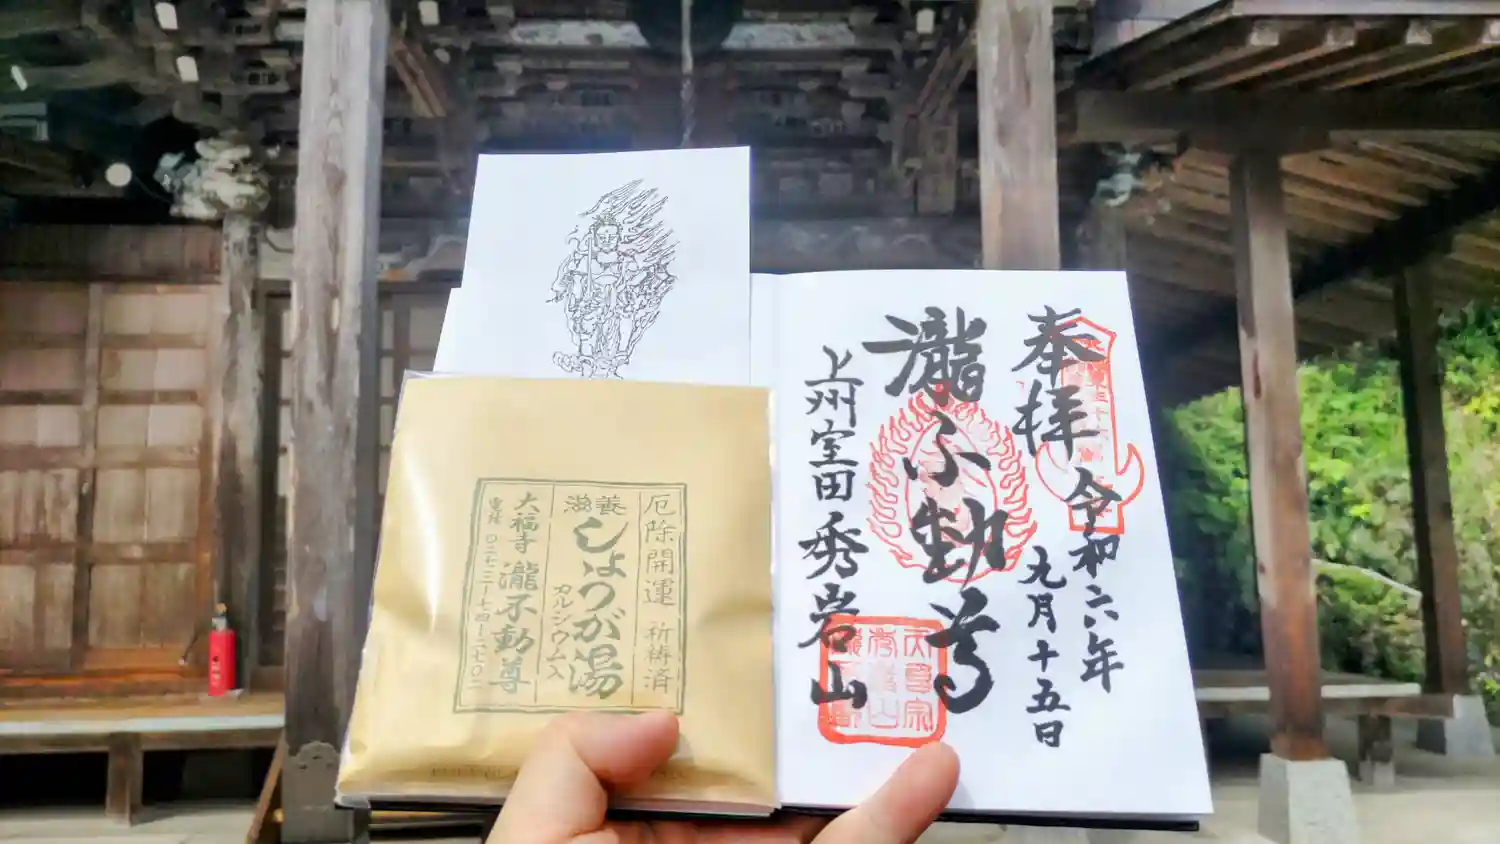 奉拝
令和六年
九月十五日
瀧不動尊
上州室田 秀岩山
厄除開運 祈祷済
滋養
しょうが湯
カルシウム入
大福寺 瀧不動尊
電話 〇二七三ー七四ー二七〇二